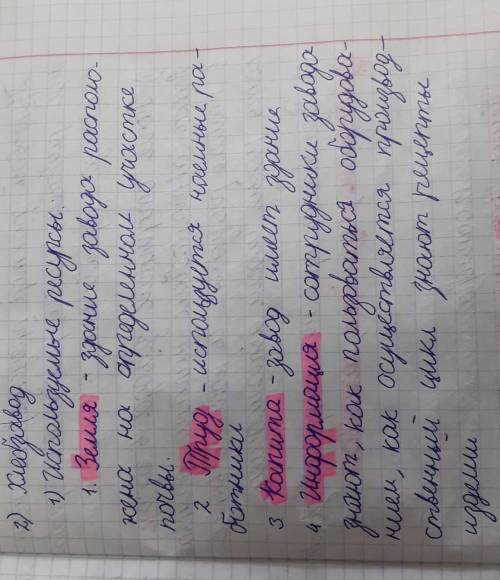 2) Хлебзавод
1) Используемые ресурсы:
1. Земля - здание завода располо-
жена на определенном участке
почвы.
2 Труд - используется наемные ра-
ботники
3 Капита - завод имеет здание
4 Информация - сотрудники завода
знают, как пользоваться оборудова-
нием, как осуществляется производ-
ственный цикл знают рецепты
изделий